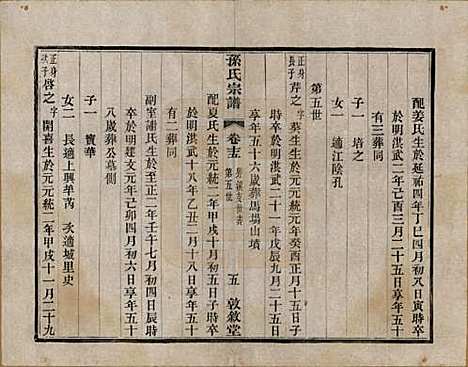 配姜氏生於延祐四年丁巳四月初八日寅時卒
於明洪武二年己酉三月二十五日享年五十
有三葬同
子一 培之
女一 適江陰孔
第五世
正身長子 芹之 字葵生生於元元年癸酉正月十五日子
時卒於明洪武二十一年戊辰九月二十五日
享年五十六歲葬馬塲山墳
孫氏宗譜
卷十三
第五世
五 敦敘堂
配夏氏生於元元統二年甲戌十月初五日子時
卒於明洪武二十八年乙亥二月十八日享年六十
有二葬同
副室謝氏生於至正二年壬午七月初四日辰時
卒於明建文元年己卯四月初六日享年五十
八歲葬公墓側
子一 寶華
女二 長適上興牟芮 次適城里史
正身次子 啓之 字開喜生於元元統二年甲戌十一月二十九